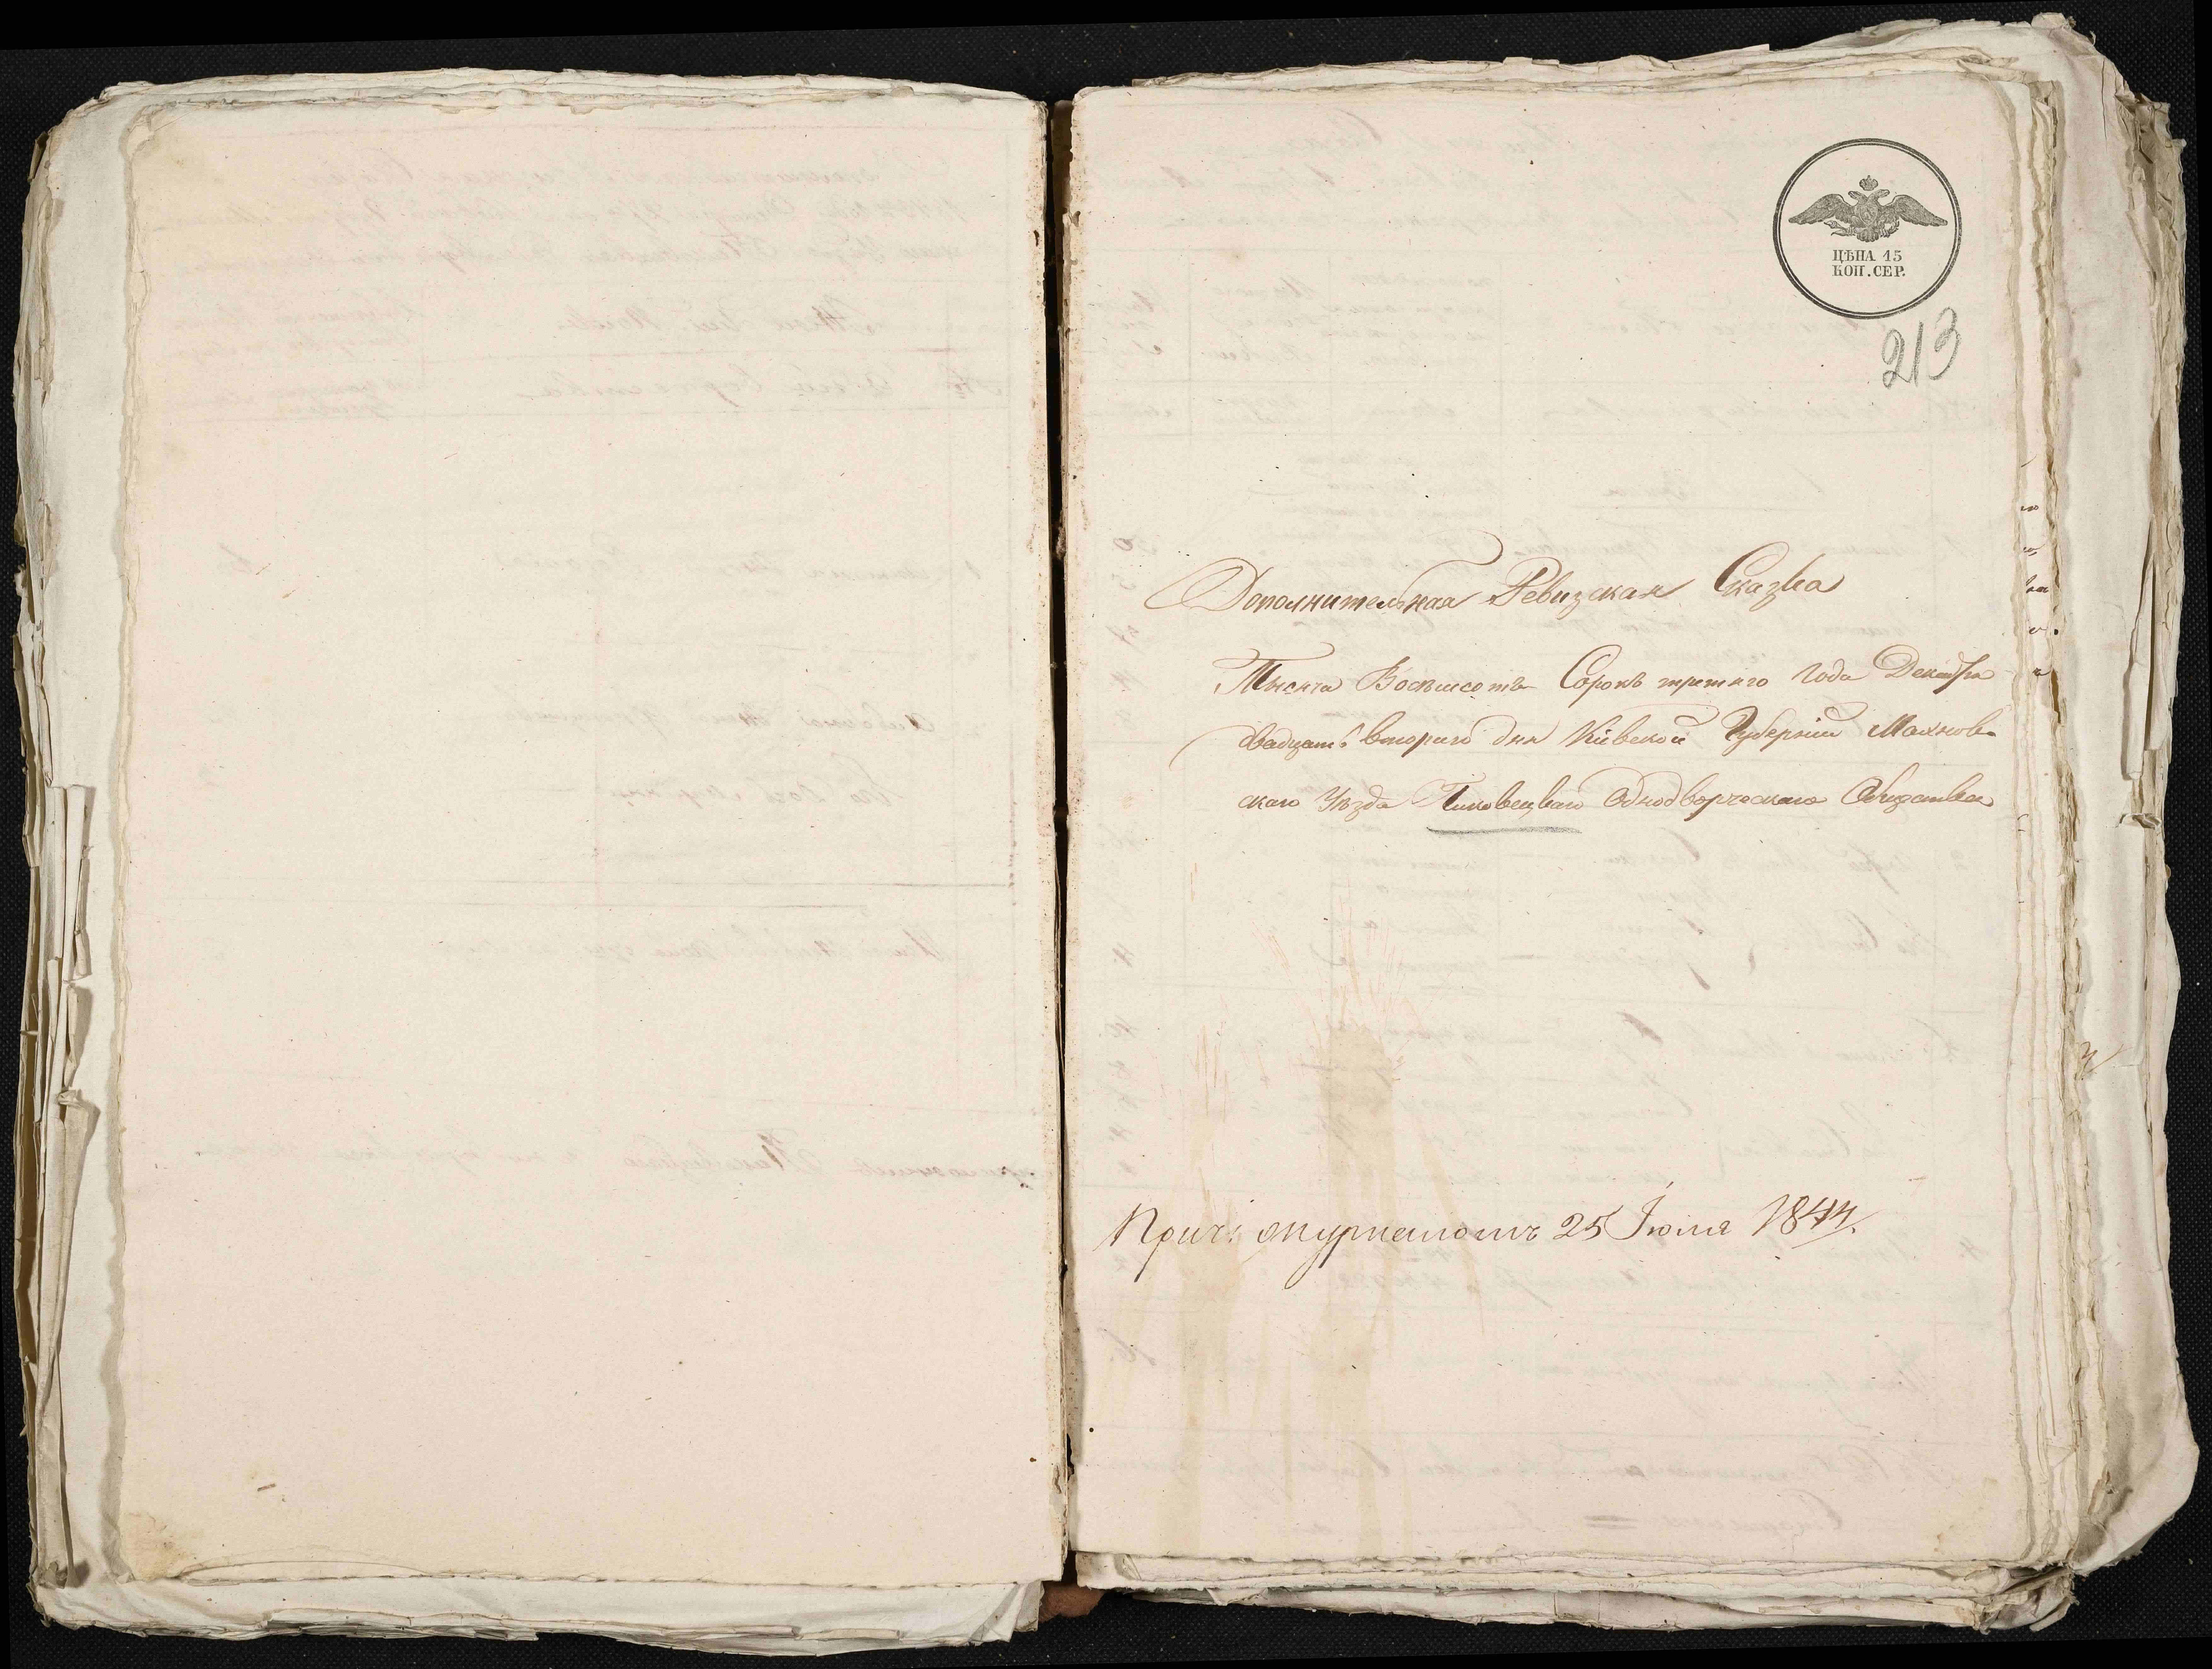 ЦѢНА 15
КОП. СЕР.
213
Дополнительная Ревизская Сказка
Тысяча Восемсотъ Сорокъ третяго Года Декабря
двадцать втораго дня Кіевской Губерніи Махнов-
скаго Уѣзда Пиковецкаго Однодворческаго Общества
Прич: журналомъ 25 Іюля 1844.